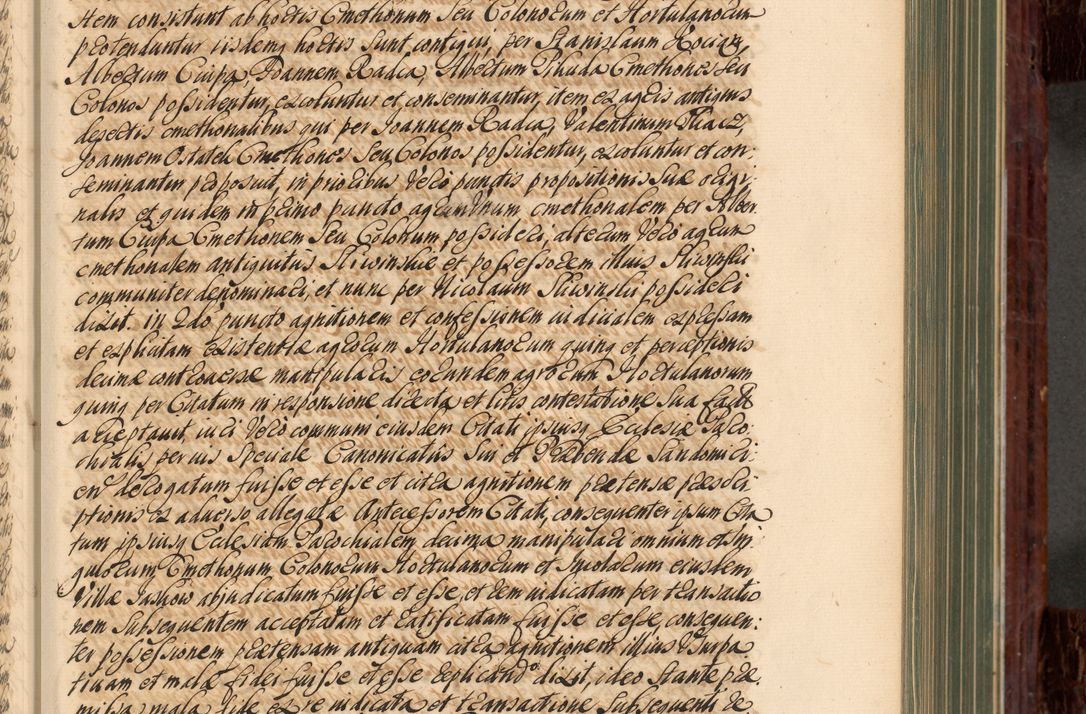 Item consistunt ab hortis Cmethonum Seu Colonorum et Hortulanorum
protenduntur iisdemq hortis Sunt contigui, per Stanislaum Kocięę,
Albertum Ciupa, Joannem Radca, Albertum Pluda Cmethones Seu
Colonos possidentur, excoluntur et conseminantur, item ex agris antiquis
desertis cmethonalibus qui per Joannem Radca, Valentinum Tkacz,
Joannem Ostatek Cmethones Seu Colonos possidentur, excoluntur et con:
seminantur proposuit, in prioribus Vero punctis propositionis Suæ origi:
nalis et quidem in primo puncto agrum unum cmethonalem per Alber
tum Ciupa Cmethonem Seu Colonum possideri, alterum Vero agrum
cmethonalem antiquitus Sliwinskie et possessorem illius Sliwinski
communiter denominari, et nunc per Nicolaum Sliwinski possideri
dixit. in 2do puncto agnitionem et confessionem iudicialem expressam
et explicitam existentiæ agrorum Hortulanorum quinq et perceptionis
decimæ controversæ manipularis eorundem agrorum Hortulanorum
quinq per Citatum in responsione directa et litis contestatione Sua facta
acceptavit, iuri Vero communi eiusdem Citati ipsiusq Ecclesiæ Paro:
chialis, per ius Speciale Canonicatus Sui et Præbendæ Sandomiri:
en derogatum fuisse et esse et citra agnitionem prætensæ præscri:
ptionis ex adverso allegatæ Antecessorem Citati, consequenter ipsum Cita
tum ipsiusq Ecclesiam Parochialem decima manipulari omnium et Sin
gulorum Cmethonum Colonorum Hortulanorum et Incolarum eiusdem
Villæ Jaskow abjudicatum fuisse et esse, et rem iudicatam per transactio
nem Subsequentem acceptatam et ratificatam fuisse et esse, consequen:
ter possessionem prætensam antiquam citra agnitionem illius Usurpa
tivam et malæ fidei fuisse et esse replicando dixit, ideo Stante præ
missa mala fide ex re iudicata et transactione Subsequenti de